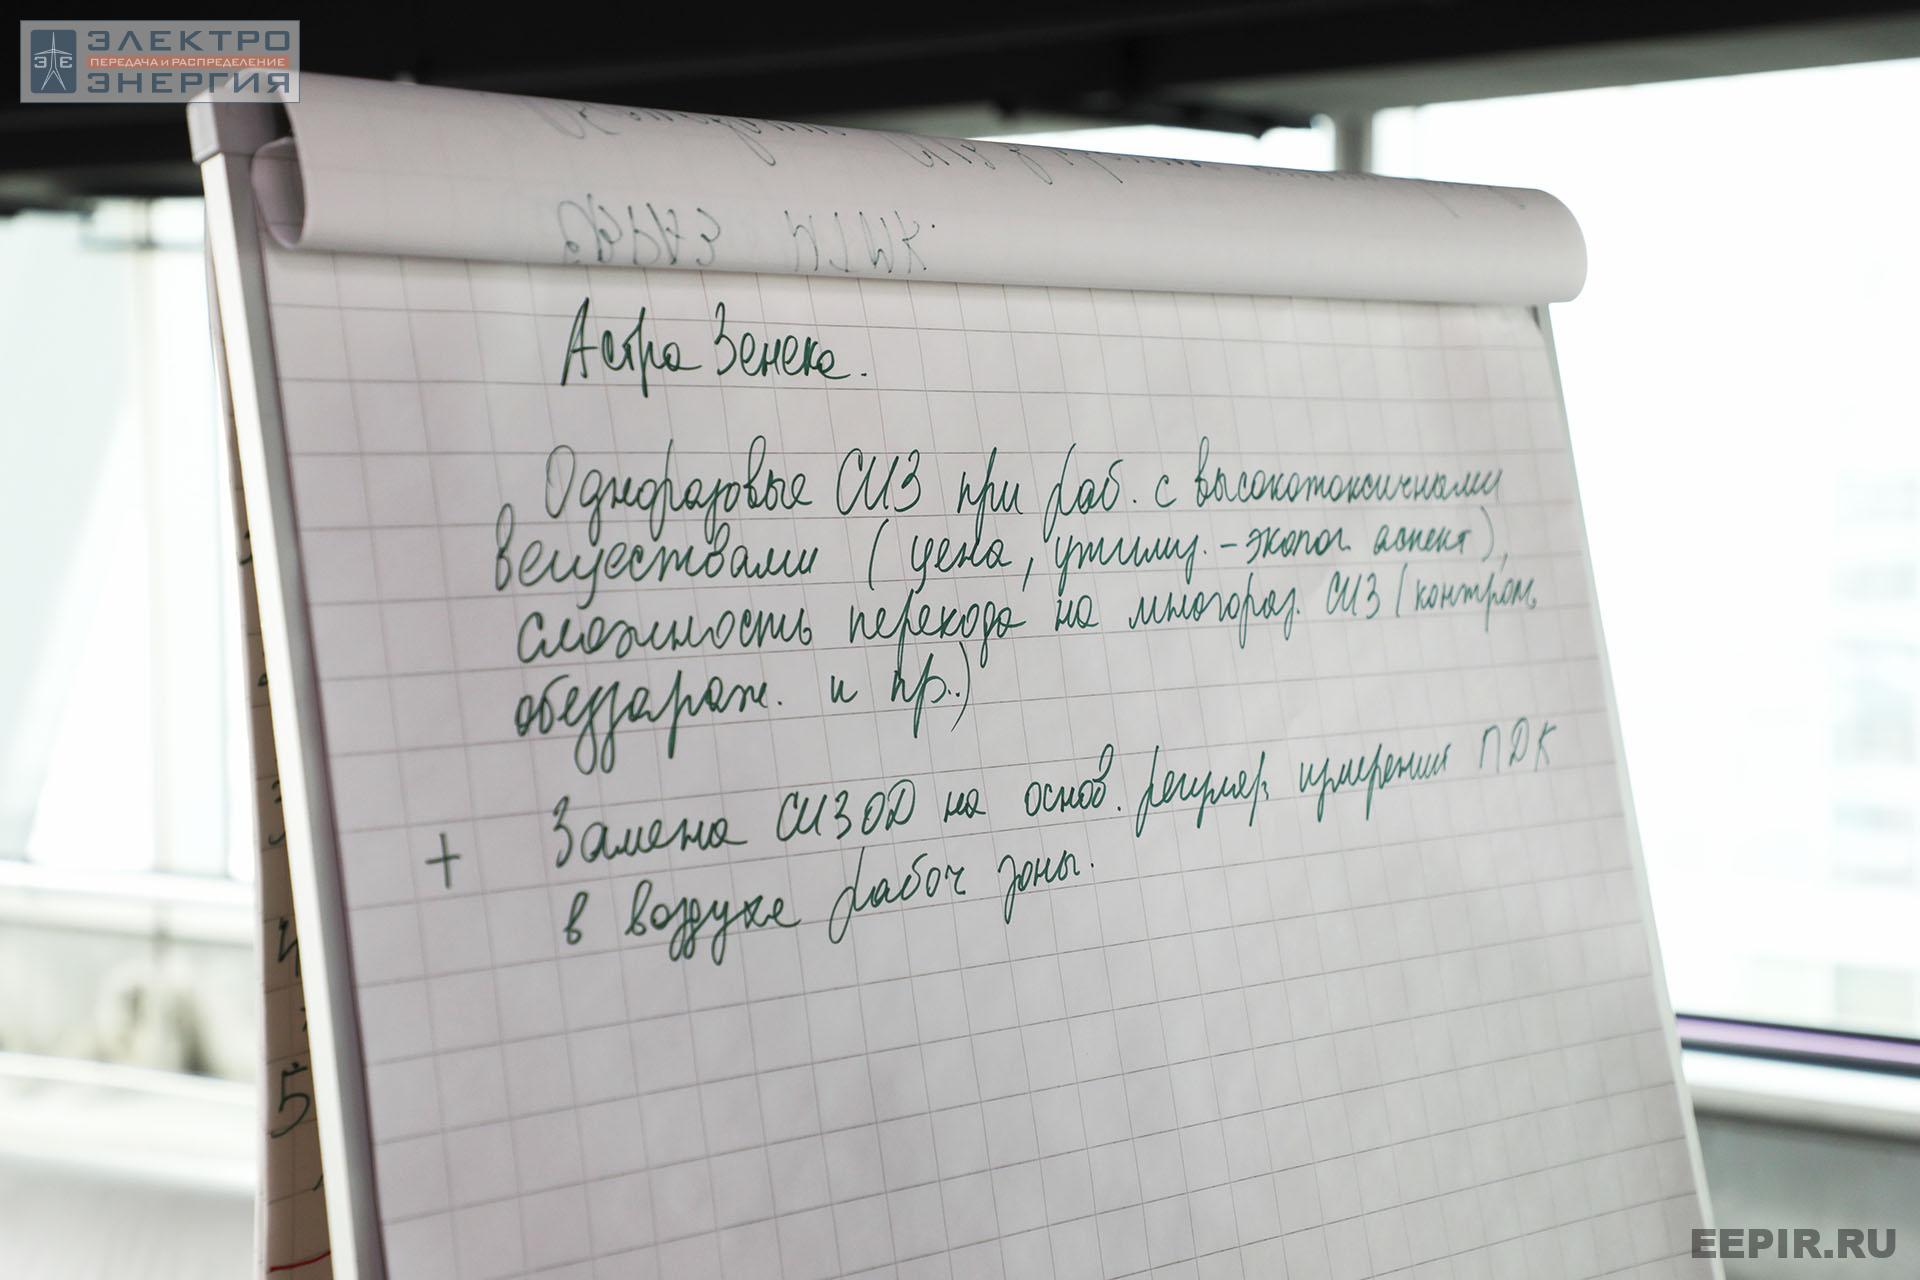 ЭЛЕКТРО
ПЕРЕДАЧА И РАСПРЕДЕЛЕНИЕ
ЭЭЕ
ЭНЕРГИЯ
Астра Зенека.
Одноразовые СИЗ при раб. с высокотоксичными
веществами (цена, утилиз. - эколог. аспект),
сложность перехода на многораз. СИЗ (контроль
обеззараж. и пр..)
+ Замена СИЗОД на основ. регуляр. измерений ПДК
в воздухе рабоч зоны.
4
5
EEPIR.RU